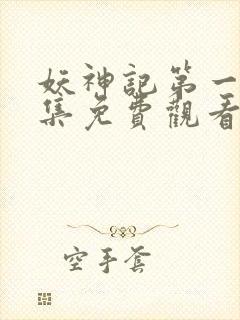 妖神記第一
集免費觀看
空手套